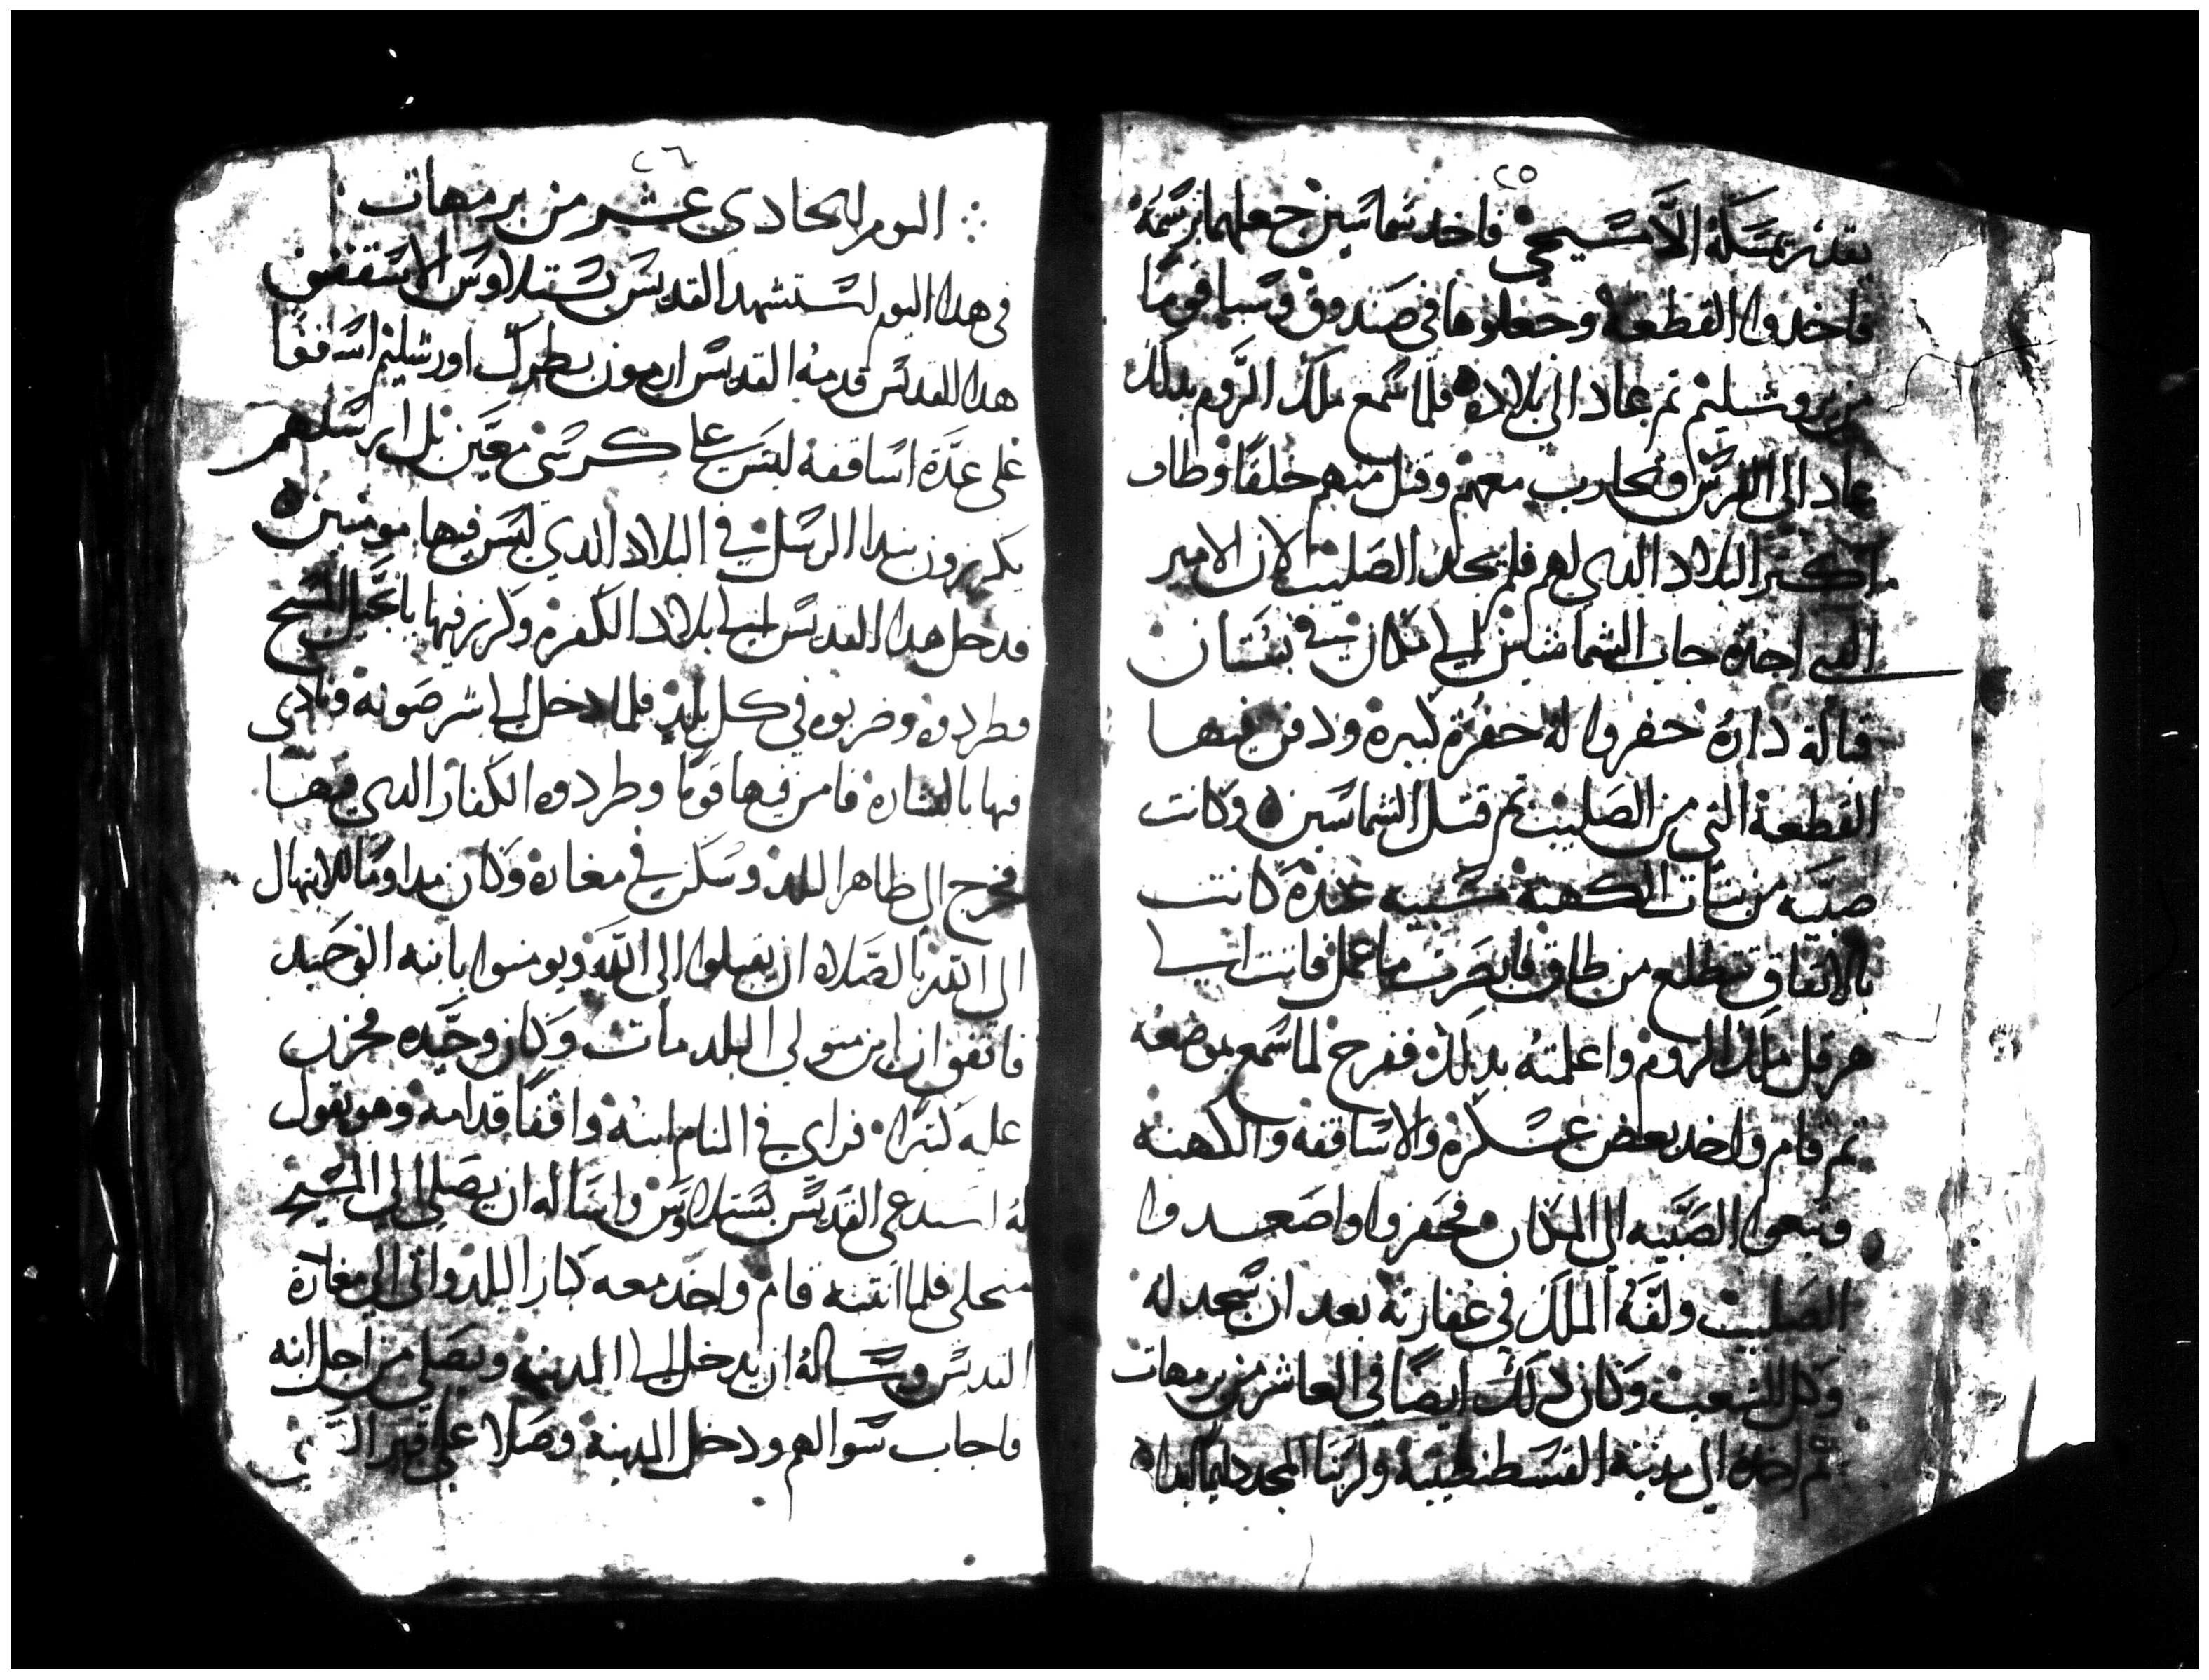 ٢٥
يقدر يمسكه الا مسيحي فاخد شماسين جعلهما برسمه
فاخدوا القطعة وجعلوها في صندوق وسبا قوما
من يروشليم ثم عاد الى بلاده فلما سمع ملك الروم بدلك
عاد الى الفرس وتحارب معهم وقتل منهم خلقا وطاف
اكتر البلاد الدي لهم فلم يجد الصليب لان الامير
الدي اخده جاب الشماسين الي مكان في بستان
قبالة داره حفروا له حفرة كبيرة ودفن فيها
القطعة التي من الصليب تم قتل الشماسين وكانت
صبيه من بنات الكهنة مسبيه عنده كانت
بالاتفاق تتطلع من طاق فابصرت ما عمل فاتت الي
هرقل ملك الروم واعلمته بدلك ففرح لما سمع بموضعه
تم قام واخد بعض عسكره والاساقفه والكهنه
وتبعوا الصبيه الى المكان فحفروا واصعدوا
الصليب ولفه الملك في عفارته بعد ان سجد له
وكل الشعب وكان دلك ايضا في العاشر من برمهات
تم اخده الى مدينة القسطنطينية ولربنا المجد دايما ابدا
٢٦
اليوم الحادي عشر من برمهات
في هدا اليوم استشهد القديس بستلاوس الاسقف
هدا القديس قدمه القديس ارمون بطرك اورشليم اسقفا
على عدة اساقفه ليس على كرسي معين بل ارسلهم
يكرزون بندا الرسل في البلاد الدي ليس فيها مومنين
فدخل هدا القديس الي بلاد الكفرة وكرز فيها بانجيل المسيح
فطردوه وضربوه في كل بلد فلما دخل الي شرصونة ونادى
فيها بالبشارة فامن فيها قوما وطردوه الكفار الدي فيها
فخرج الى ظاهر البلد وسكن في مغارة وكان مداوما للابتهال
الى الله بالصلاة ان يقبلوا الى الله ويومنوا بابنه الوحيد
فاتفق ان ابن متولي البلد مات وكان وحيده فحزن
عليه كتيرا فراي في المنام ابنه واقفا قدامه وهو يقول
له استدعي القديس بستلاوس واسأله ان يصلي الي المسيح
من اجلي فلما انتبه قام واخد معه كبار البلد واتى الى مغارة
القديس وسأله ان يدخل الي المدينه ويصلي من اجل ابنه
فاجاب سوالهم ودخل المدينة وصلا على قبر